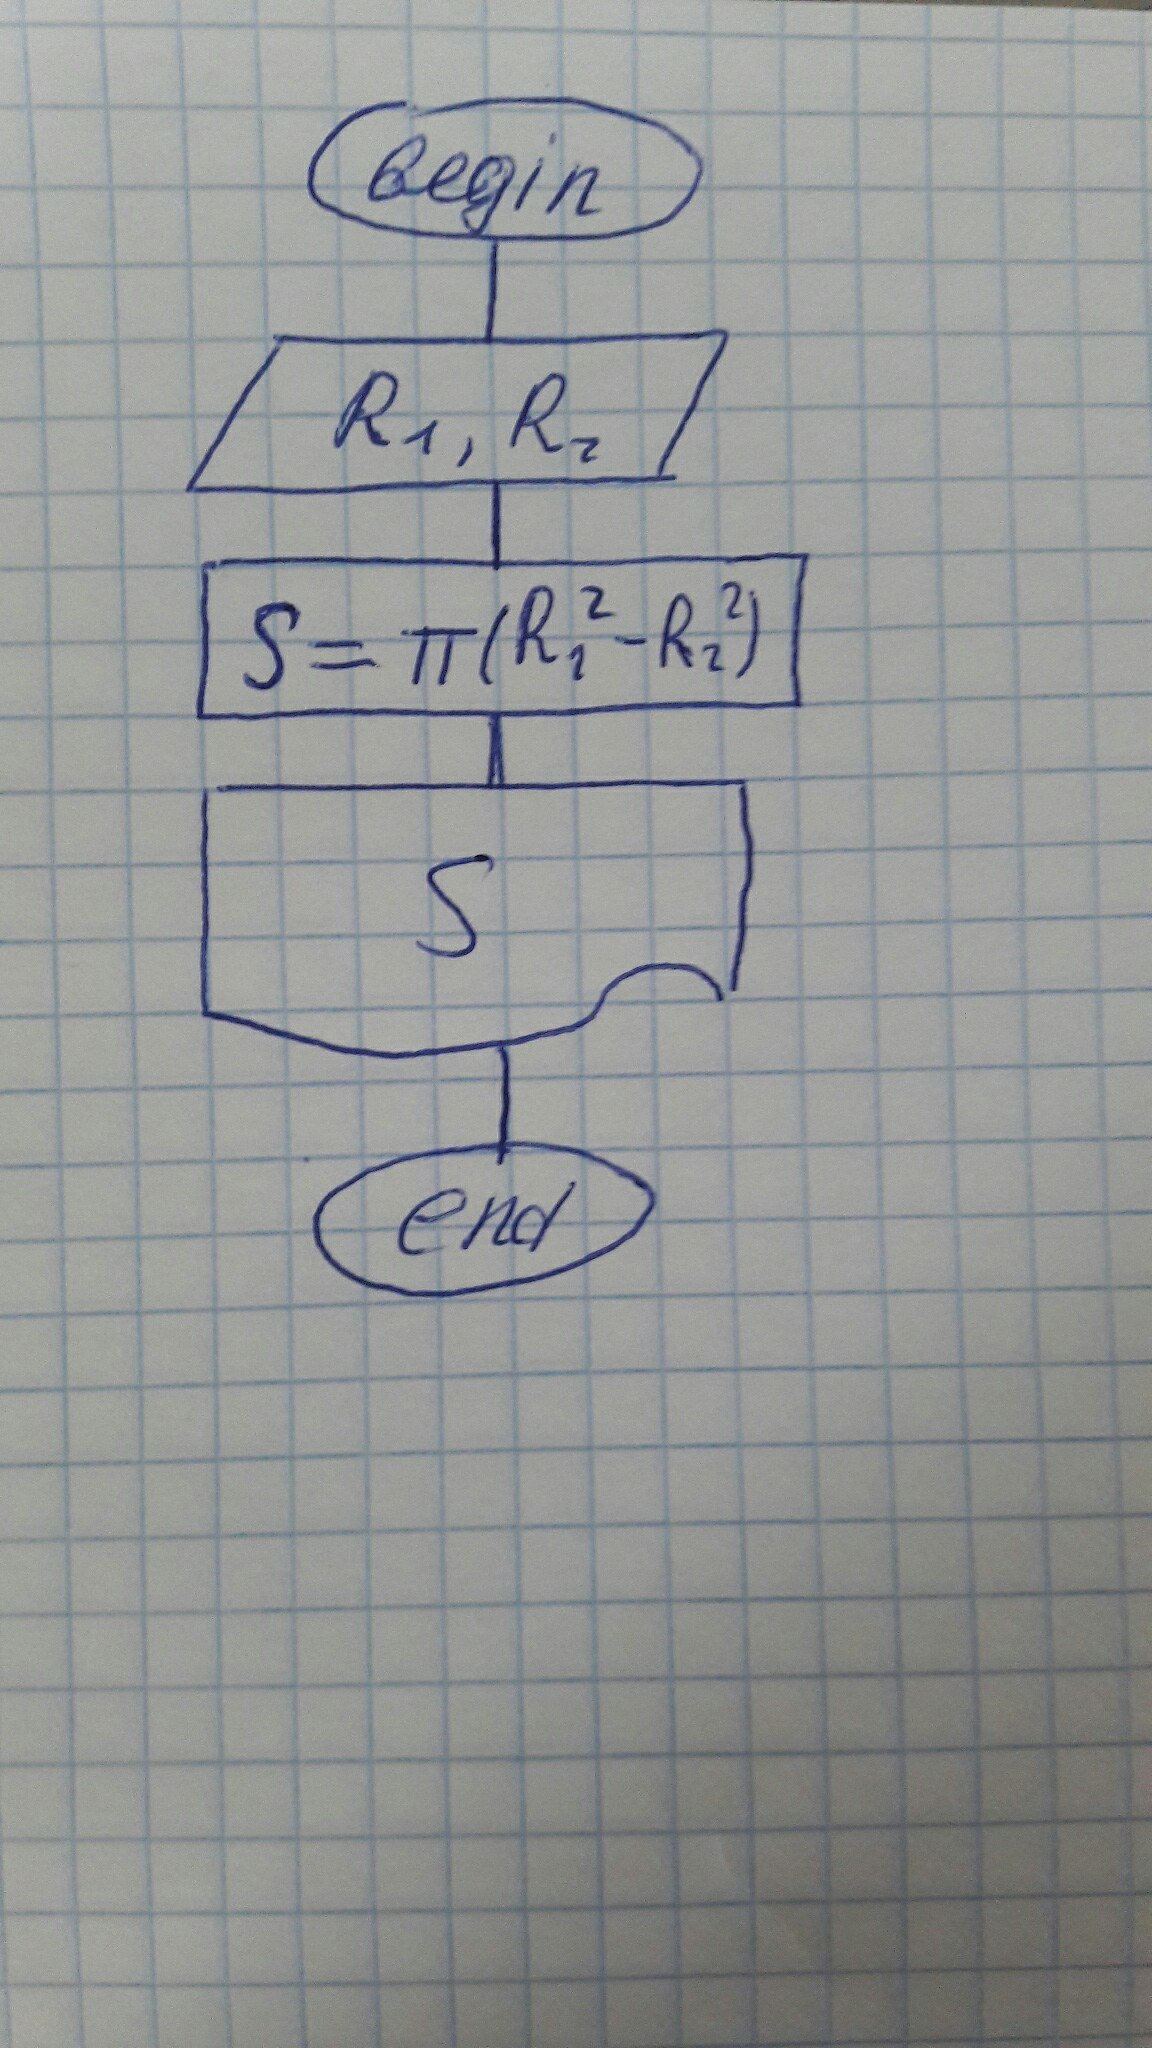 begin
R₁, R₂
S = π(R₁² - R₂²)
S
end